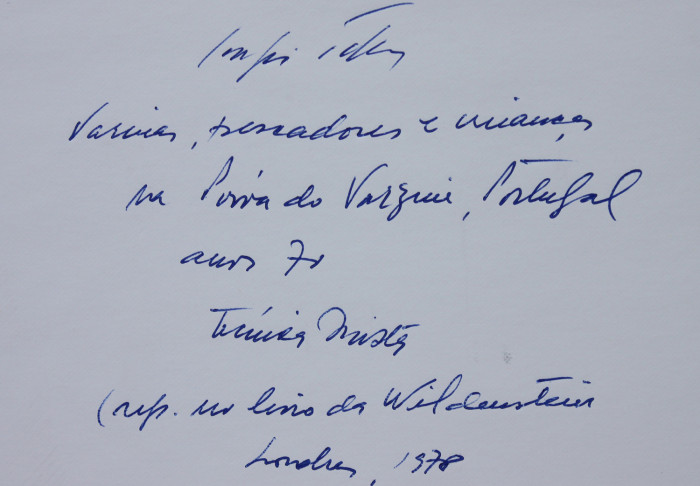 Sergio Telles
Varinas, pescadores e crianças
na Póvoa do Varzim, Portugal
anos 70
Técnica Mista
(rep. no livro da Wildenstein
Londres, 1978